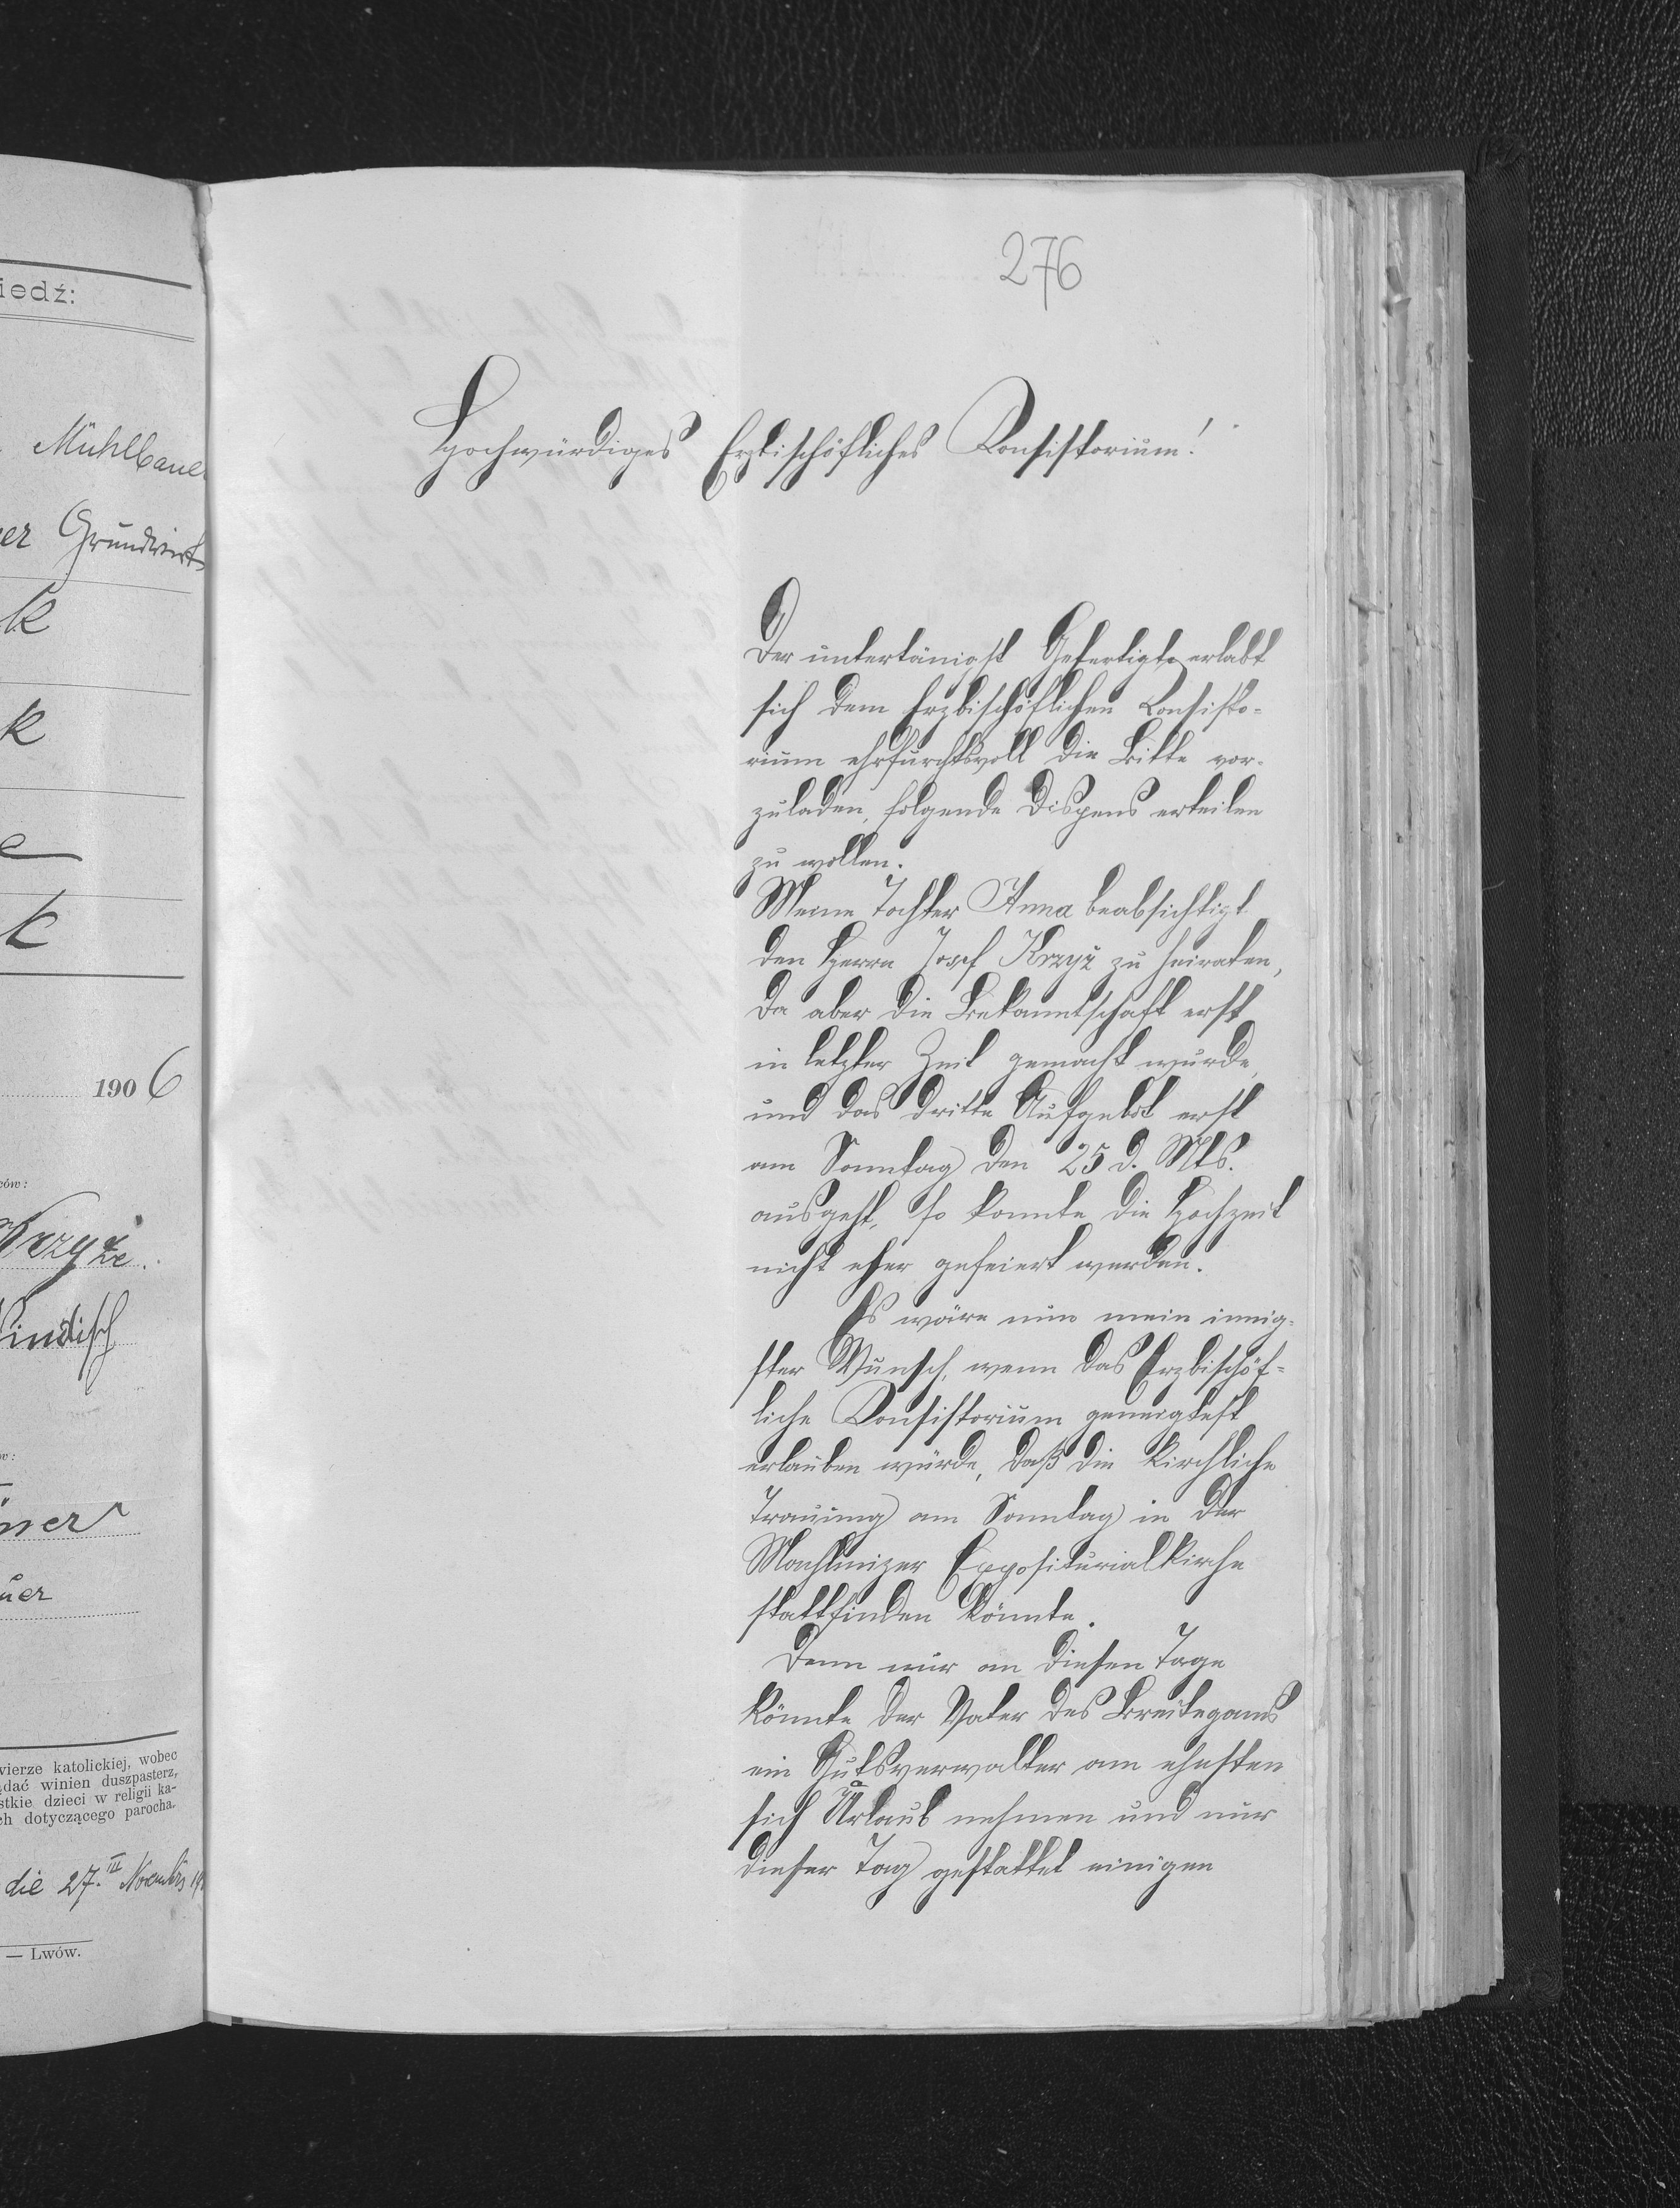 iedź:
Mühlbaue
er Grundwirt
k
k
e
k
1906
ców:
Krzyże
indisch
w:
ner
uer
wierze katolickiej, wobec
ądać winien duszpasterz,
stkie dzieci w religii ka-
ch dotyczącego parocha.
die 27. III Novembris 19
— Lwów.
276
Hochwürdiges Erzbischöfliches Konsistorium!
Der untertänigst Gefertigte erlabt
sich dem Erzbischöflichen Consisto-
rium ehrfurchtsvoll die Bitte vor-
zuladen, folgende Dispens erteilen
zu wollen.
Meine Tochter Anna beabsichtigt
den Herrn Josef Krzyż zu heiraten,
da aber die Bekanntschaft erst
in letzter Zeit gemacht wurde,
und das dritte Aufgebot erst
am Sonntag den 25 d. Mts.
ausgeht, so konnte die Hochzeit
nicht eher gefeiert werden.
Es wäre nun mein innig-
ster Wunsch, wenn das Erzbischöf-
liche Konsistorium geneigtest
erlauben würde, daß die kirchliche
Trauung am Sonntag in der
Machlinizer Expositurialkirche
stattfinden könnte.
Denn nur an diesen Tage
könnte der Vater des Breitegams
ein Gutsverwalter am ehesten
sich Urlaub nehmen und nur
dieser Tag gestattet einigen